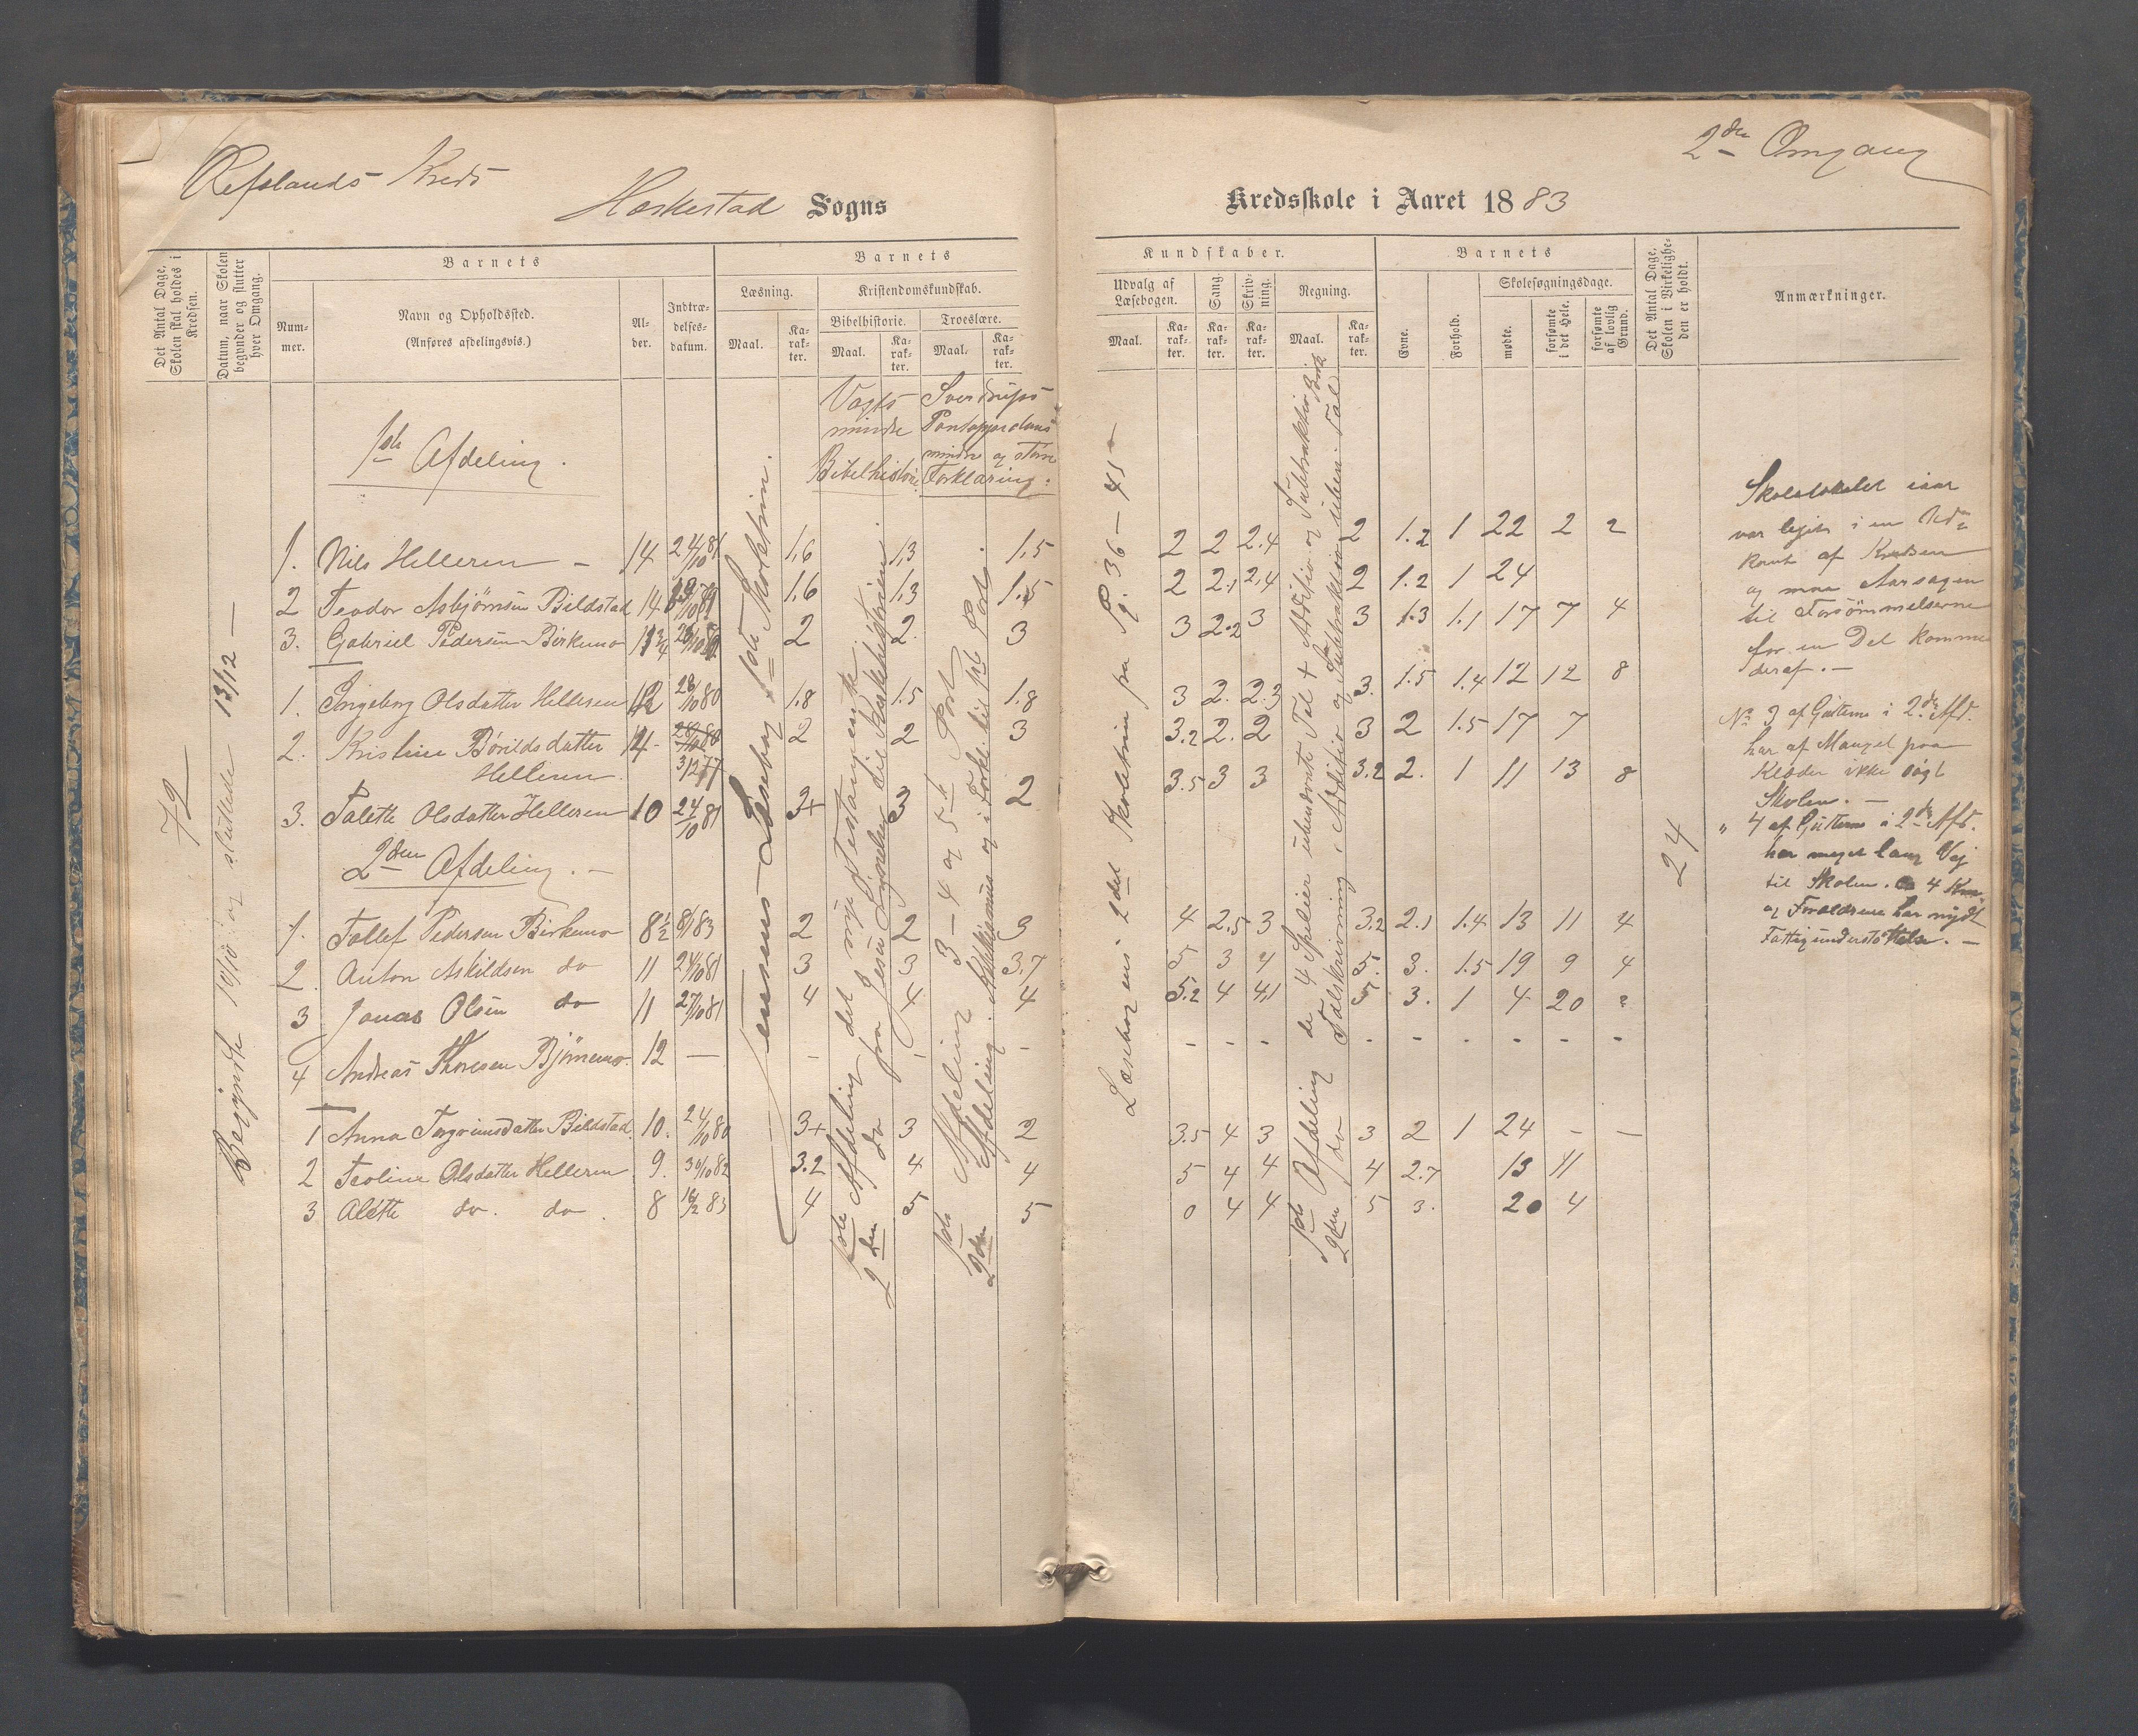 Refslands Kreds
2den Omgang
Heskestad Sogns
Kredsskole i Aaret 1883
Det Antal Dage, Skolen skal holdes i Kredsen.
Datum, naar Skolen begynder og slutter hver Omgang.
Barnets
Nummer.
Navn og Opholdssted.
(Anføres afdelingsvis.)
Alder.
Indtrædelsesdatum.
Barnets
Læsning.
Maal.
Karakter.
Kristendomskundskab.
Bibelhistorie.
Maal.
Karakter.
Troeslære.
Maal.
Karakter.
Kundskaber.
Udvalg af Læsebogen.
Maal.
Karakter.
Sang.
Karakter.
Skrivning.
Karakter.
Regning.
Maal.
Karakter.
Barnets
Evne.
Forhold.
Skolesøgningsdage.
mødte.
forsømte i det Hele.
forsømte af lovlig Grund.
Det Antal Dage, Skolen i Virkeligheden er holdt.
Anmærkninger.
72
Begyndte 19/10 og sluttede 13/12 —
Vogts mindre Bibelhistorie.
Sverdrups Pontoppidans mindre og større Forklaring.
Jensens Læsebog 1ste Skoletrin.
Læsebogens 2det Skoletrin fra Pg. 36 — 41 —
24
1ste Afdeling.
1. Nils Helleren — 14 24/10 81 1.6 1,3 1.5 2 2 2.4 2 1.2 1 22 2 2
2 Teodor Asbjørnsen Bildstad 14 1.6 1.3 1.5 2 2.1 2,4 2 1.2 1 24
3. Gabriel Pedersen Birkemo 2 2. 3 3 2.2 3 3 1.3 1.1 17 7 4
1. Ingeborg Olsdatter Helleren 12 28/10 80 1.8 1.5 1.8 3 2. 2.3 3. 1.5 1.4 12 12 8
2. Kristine Bårildsdatter Helleren 14 3/12 77 2 2 3 3.2 2. 2 3 2 1.5 17 7
3. Talette Olsdatter Helleren 10 24/10 81 3+ 3 2 3.5 3 3 3.2 2. 1 11 13 8
2den Afdeling. —
1. Tollef Pedersen Birkemo 8½ 8/1 83 2 2 3 4 2.5 3 3.2 2.1 1.4 13 11 4
2. Anton Askildsen do 11 24/10 81 3 3 3.7 5 3 4 5. 3. 1.5 19 9 4
3 Jonas Olsen do 11 27/10 81 4 4 4 5.2 4 4,1 5 3. 1 4 20 2
4 Andreas Thoresen Bjørnemo. 12 — - - - - - - - - - - - -
1 Anna Torgrimsdatter Bildstad. 10. 24/10 80 3+ 3 2 3.5 4 3 3 2 1 24 — —
2 Teoline Olsdatter Helleren 9. 30/10 82 3.2 4 4 5 4 4 4 2.7 13 11
3 Alette do. do. 8 16/2 83 4 5 5 0 4 4 5 3. 20 4
1ste Afdeling det nye Testamente
2den do fra Jesu Lignelser til
1ste Afdeling 3 — 4 og 5te Part
2den Afdeling. Katekismus og i Forkl. til 1ste Part.
1ste Afdeling de 4 Spesier i ubenævnte Tal + Addition og Subtraktion i
2den do Talskrivning, Addition og Subtraktion i ubenv. Tal
Skolelokalet iaar
var leiet i en Ud-
kant af Kredsen
og maa Aarsagen
til Forsømmelserne
for en Del komme
deraf. —
No 3 af Gutterne i 2den Afd.
har af Mangel paa
Klæder ikke søgt
Skolen. —
" 4 af Gutterne i 2den Afd.
har meget lang Vej
til Skolen. 4 Km
og Forældrene har nydt
Fattigunderstøttelse. —